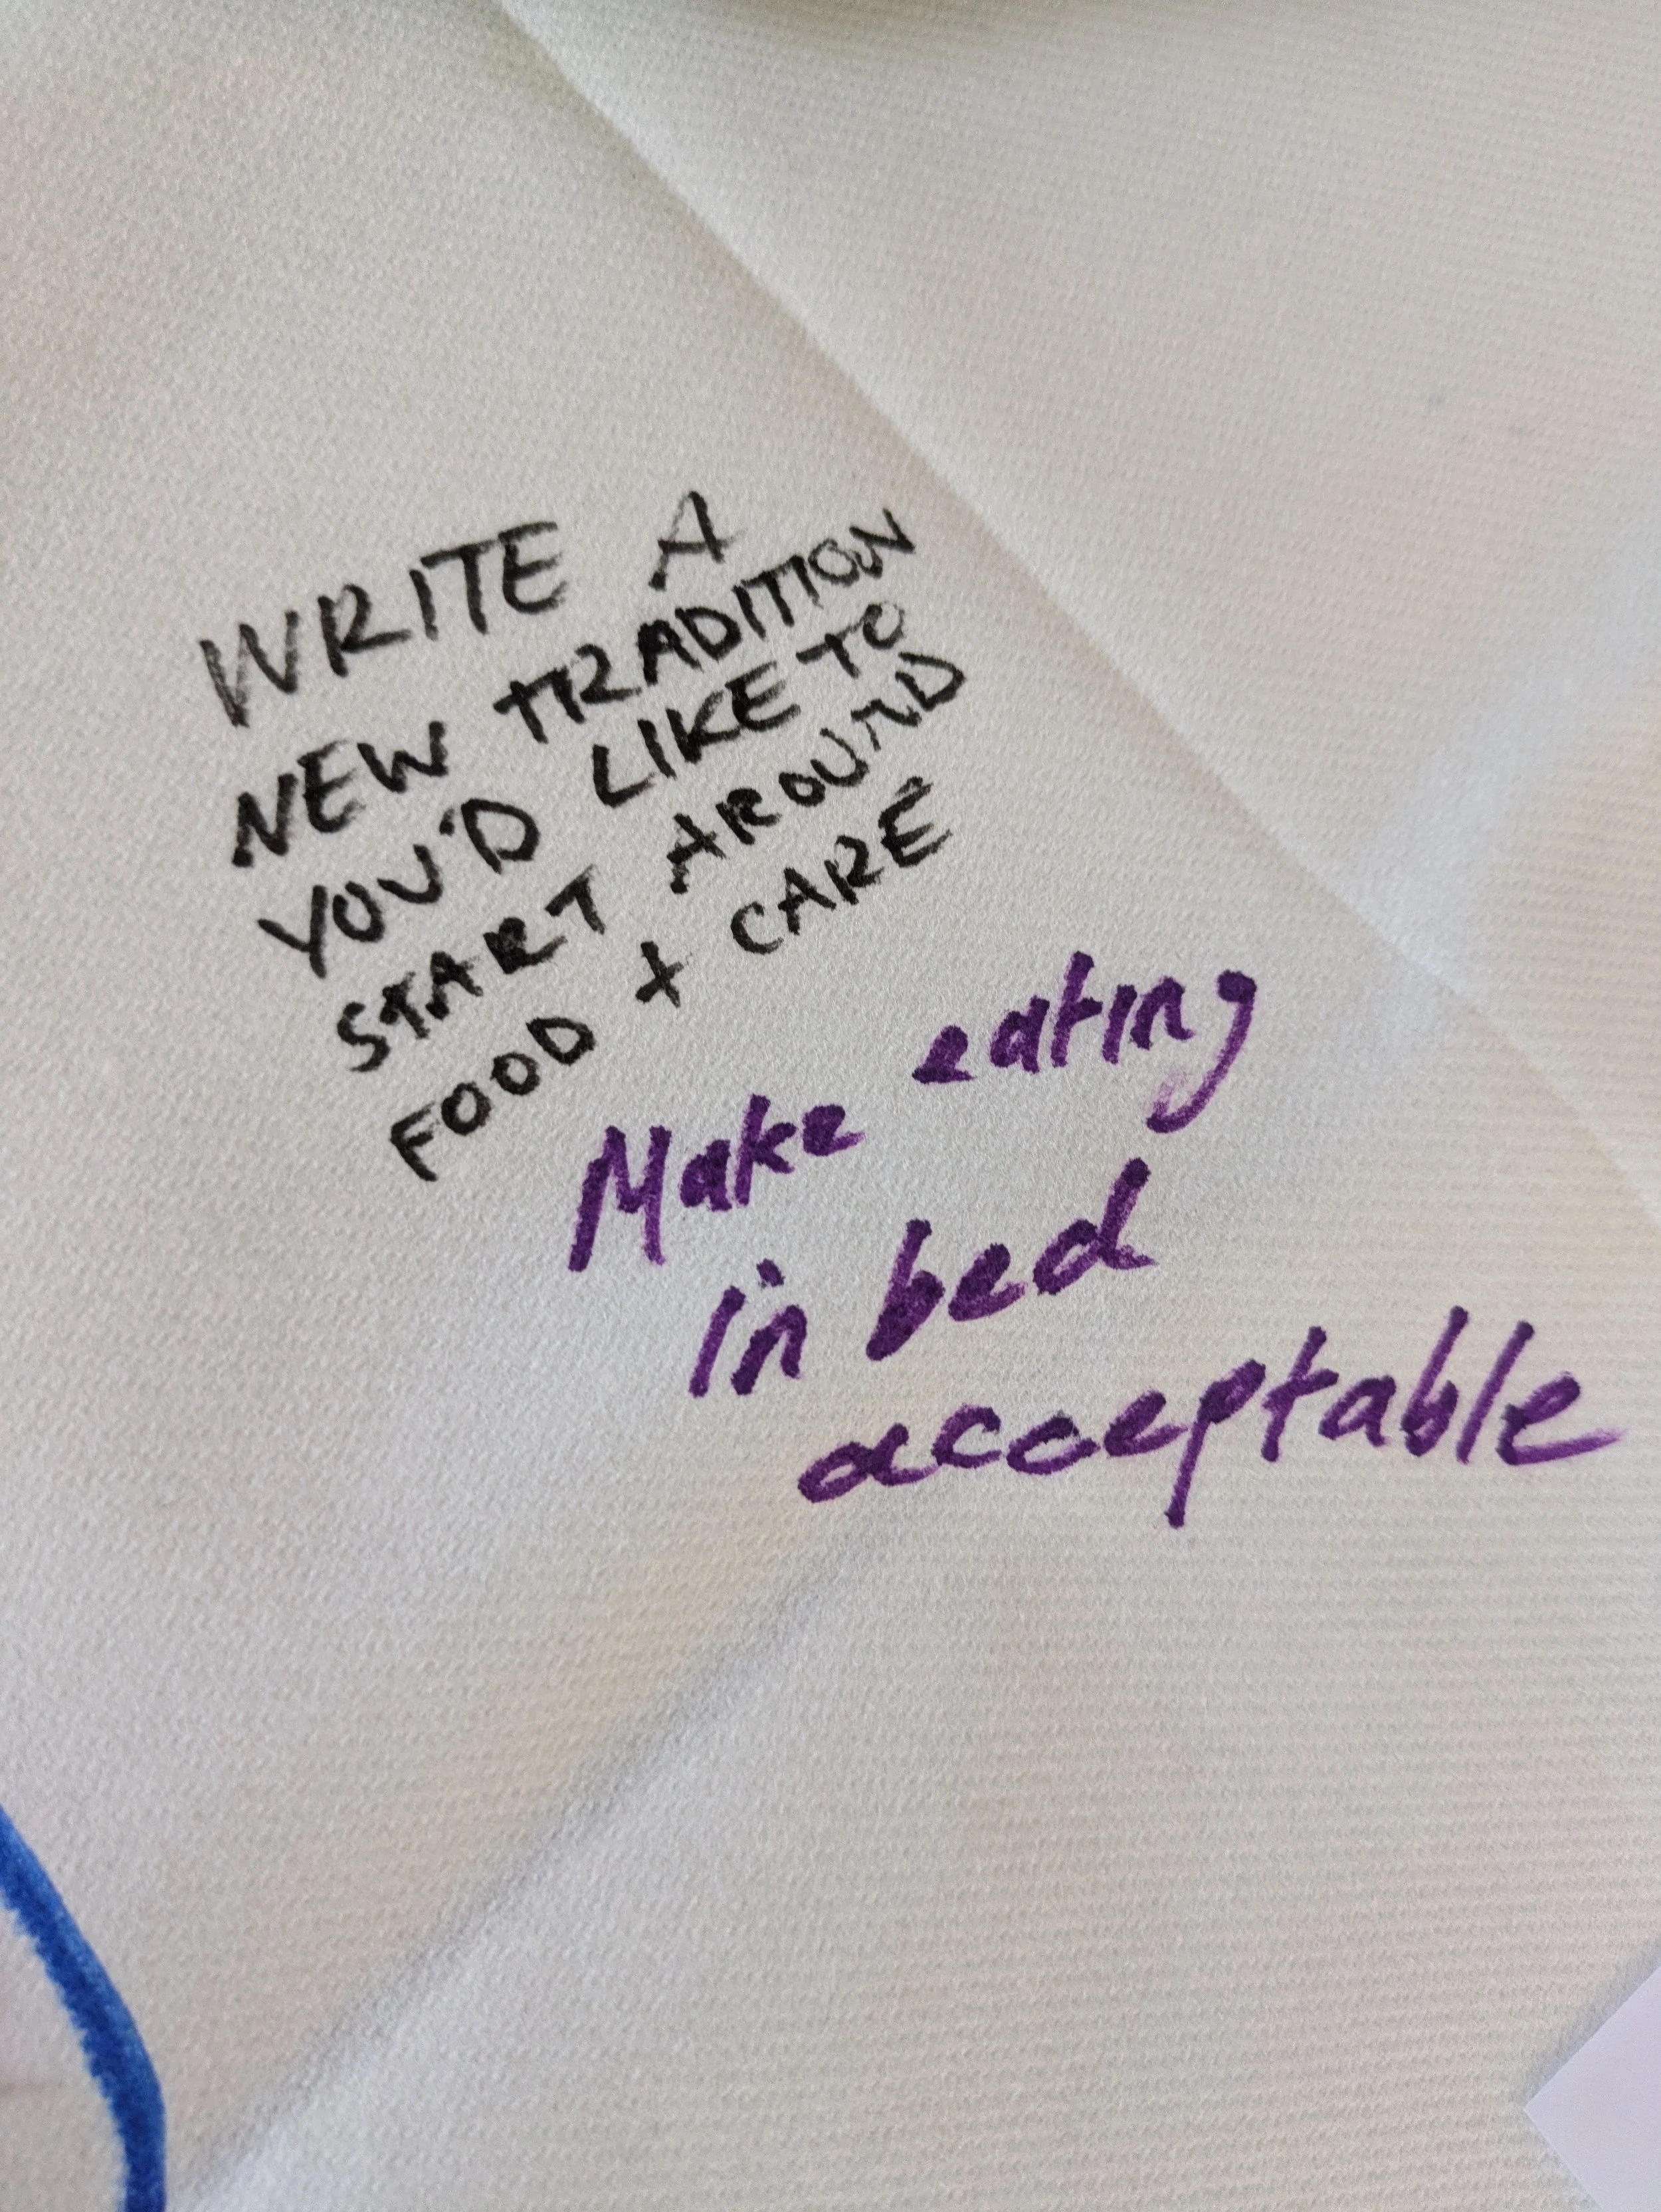 WRITE A
NEW TRADITION
YOU'D LIKE TO
START AROUND
FOOD + CARE
Make eating
in bed
acceptable